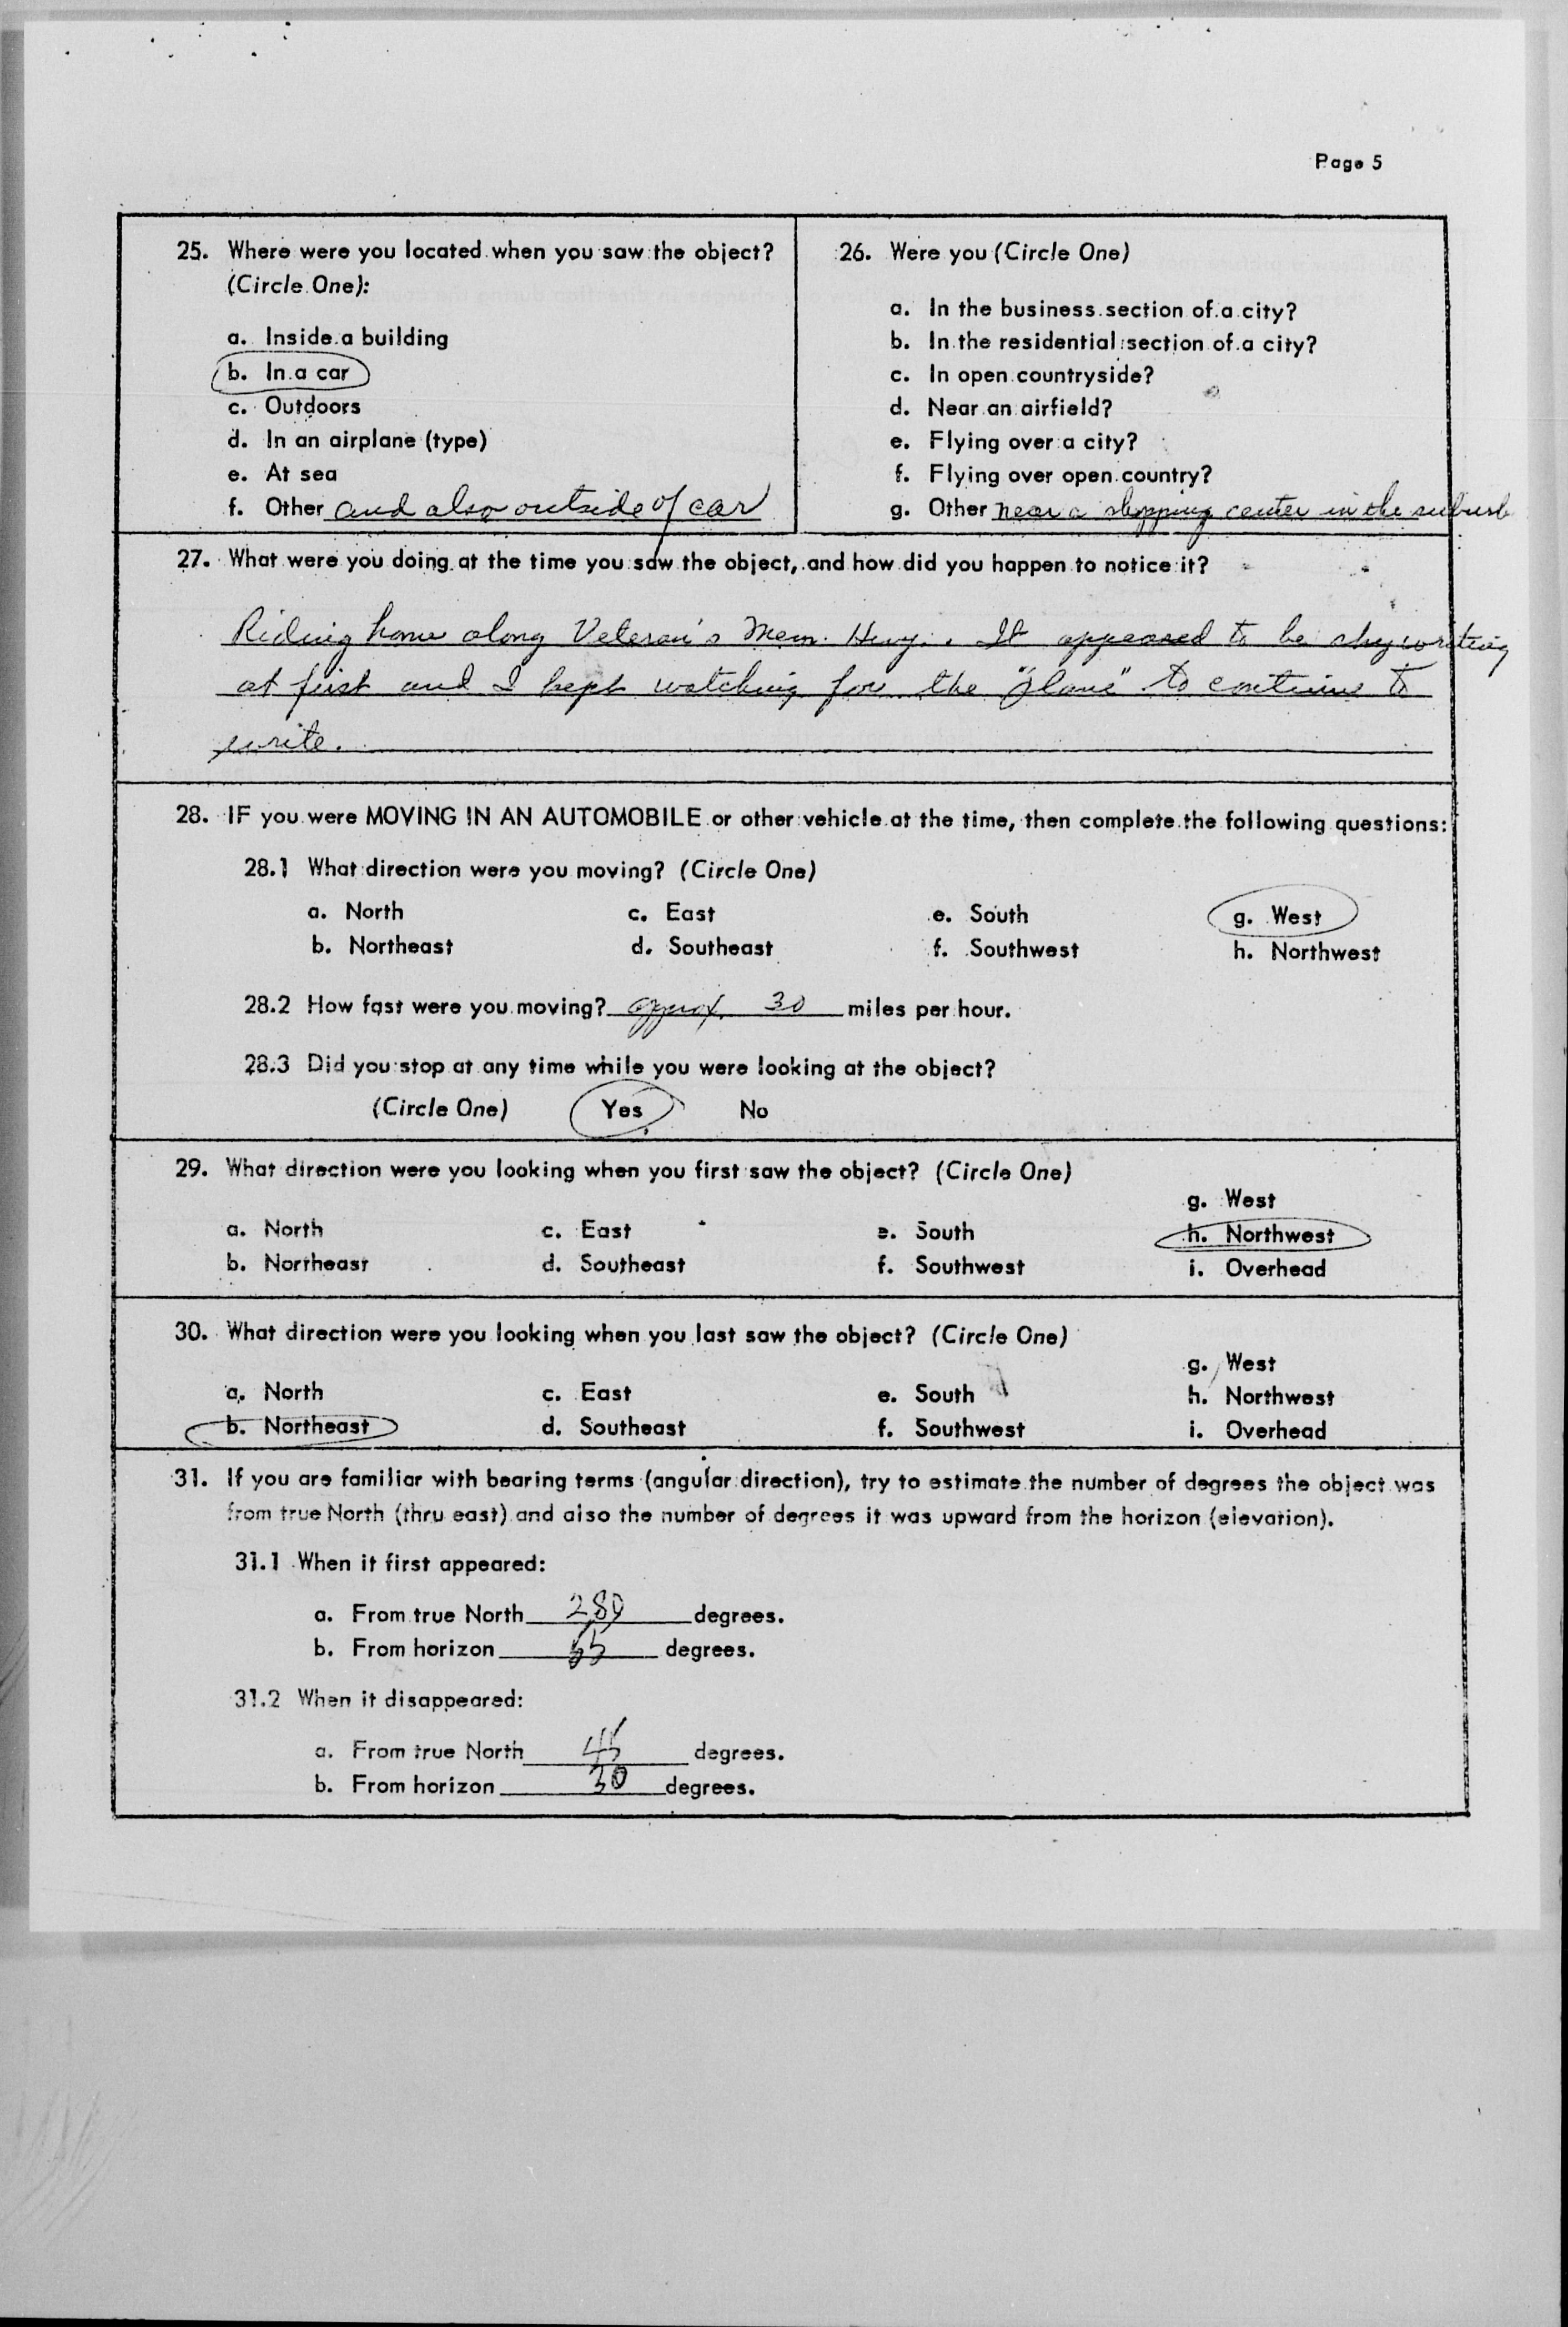 Page 5
25. Where were you located when you saw the object?
(Circle One):
a. Inside a building
b. In a car
c. Outdoors
d. In an airplane (type)
e. At sea
f. Other and also outside of car
26. Were you (Circle One)
a. In the business section of a city?
b. In the residential section of a city?
c. In open countryside?
d. Near an airfield?
e. Flying over a city?
f. Flying over open country?
g. Other near a shopping center in the suburb
27. What were you doing at the time you saw the object, and how did you happen to notice it?
Riding home along Veteran's Mem. Hwy. . It appeared to be skywriting
at first and I kept watching for the "plane" to continue to
write.
28. IF you were MOVING IN AN AUTOMOBILE or other vehicle at the time, then complete the following questions:
28.1 What direction were you moving? (Circle One)
a. North c. East e. South g. West
b. Northeast d. Southeast f. Southwest h. Northwest
28.2 How fast were you moving? approx. 30 miles per hour.
28.3 Did you stop at any time while you were looking at the object?
(Circle One) Yes No
29. What direction were you looking when you first saw the object? (Circle One)
g. West
a. North c. East e. South h. Northwest
b. Northeast d. Southeast f. Southwest i. Overhead
30. What direction were you looking when you last saw the object? (Circle One)
g. West
a. North c. East e. South h. Northwest
b. Northeast d. Southeast f. Southwest i. Overhead
31. If you are familiar with bearing terms (angular direction), try to estimate the number of degrees the object was
from true North (thru east) and also the number of degrees it was upward from the horizon (elevation).
31.1 When it first appeared:
a. From true North degrees.
b. From horizon degrees.
31.2 When it disappeared:
a. From true North 45 degrees.
b. From horizon 30 degrees.